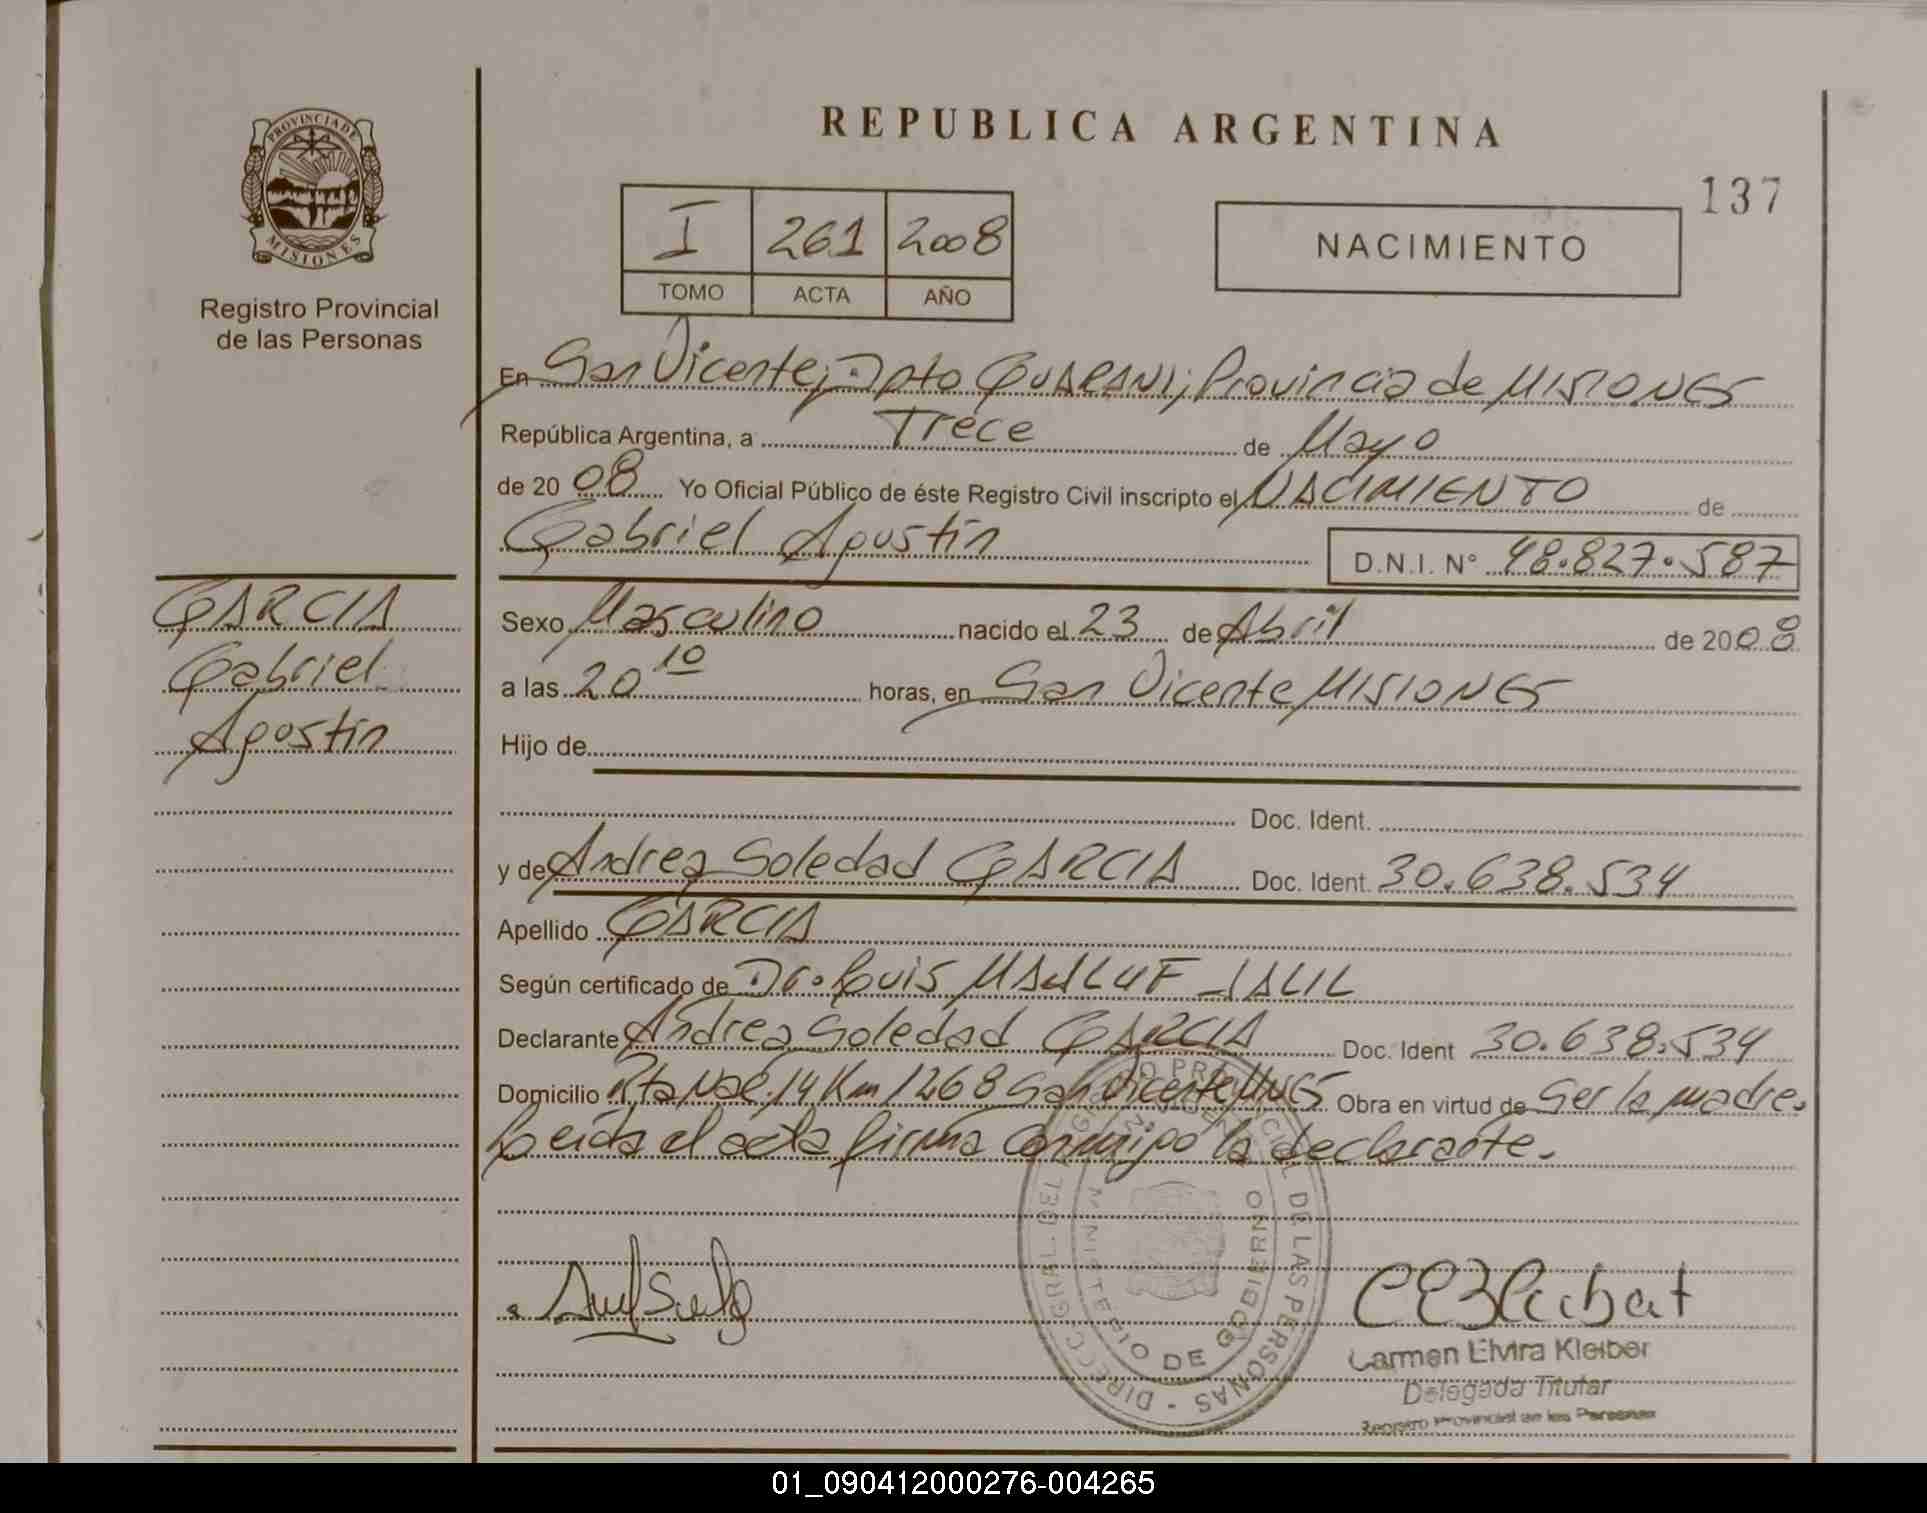 REPUBLICA ARGENTINA
137
PROVINCIA DE
MISIONES
Registro Provincial
de las Personas
I 261 2008
TOMO ACTA AÑO
NACIMIENTO
En San Vicente, Dpto GUARANI, Provincia de MISIONES
República Argentina, a Trece de Mayo
de 20 08 Yo Oficial Público de éste Registro Civil inscripto el NACIMIENTO de
Gabriel Agustín
D.N.I. N° 48.827.587
GARCIA
Gabriel
Agustín
Sexo Masculino nacido el 23 de Abril de 2008
a las 20 10 horas, en San Vicente MISIONES
Hijo de
Doc. Ident.
y de Andrea Soledad GARCIA Doc. Ident. 30.638.534
Apellido GARCIA
Según certificado de Dr. Luis JALIL
Declarante Andrea Soledad GARCIA Doc. Ident 30.638.534
Domicilio Rta Nac. 14 Km 1268 San Vicente Mnes Obra en virtud de Ser la madre.
Leida el acta firma conmigo la declarante.
DIRECC. GRAL. DEL REGISTRO PROVINCIAL DE LAS PERSONAS
MINISTERIO DE GOBIERNO
Carmen Elvira Kleiber
Delegada Titular
Registro Provincial de las Personas
01_090412000276-004265